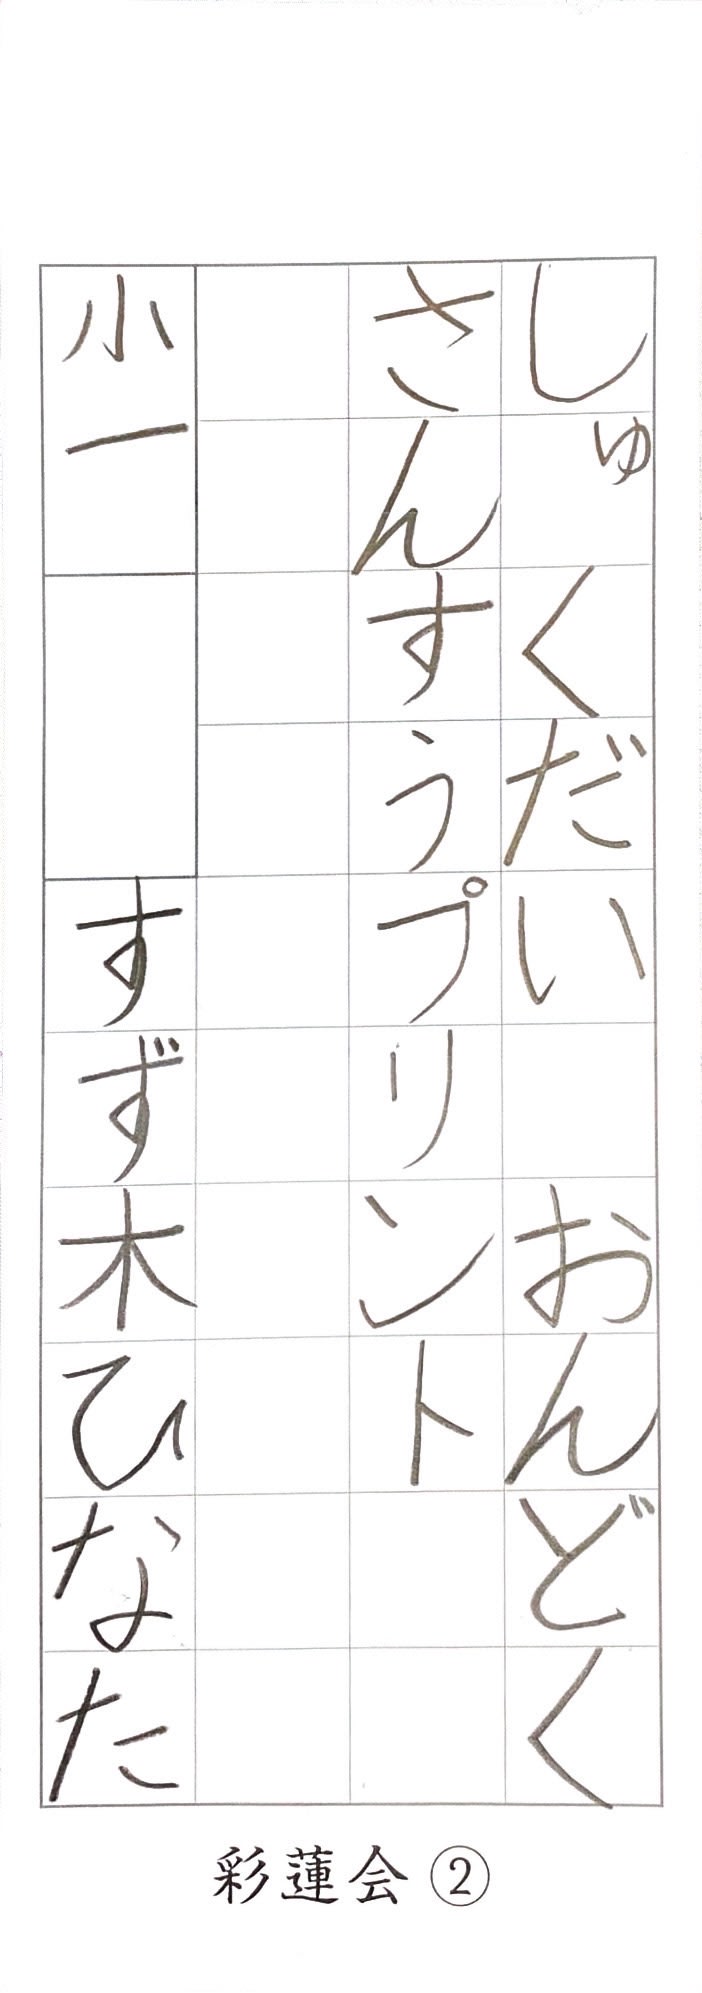 しゅくだい　おんどく
さんすうプリント
小一　すず木ひなた
彩蓮会②